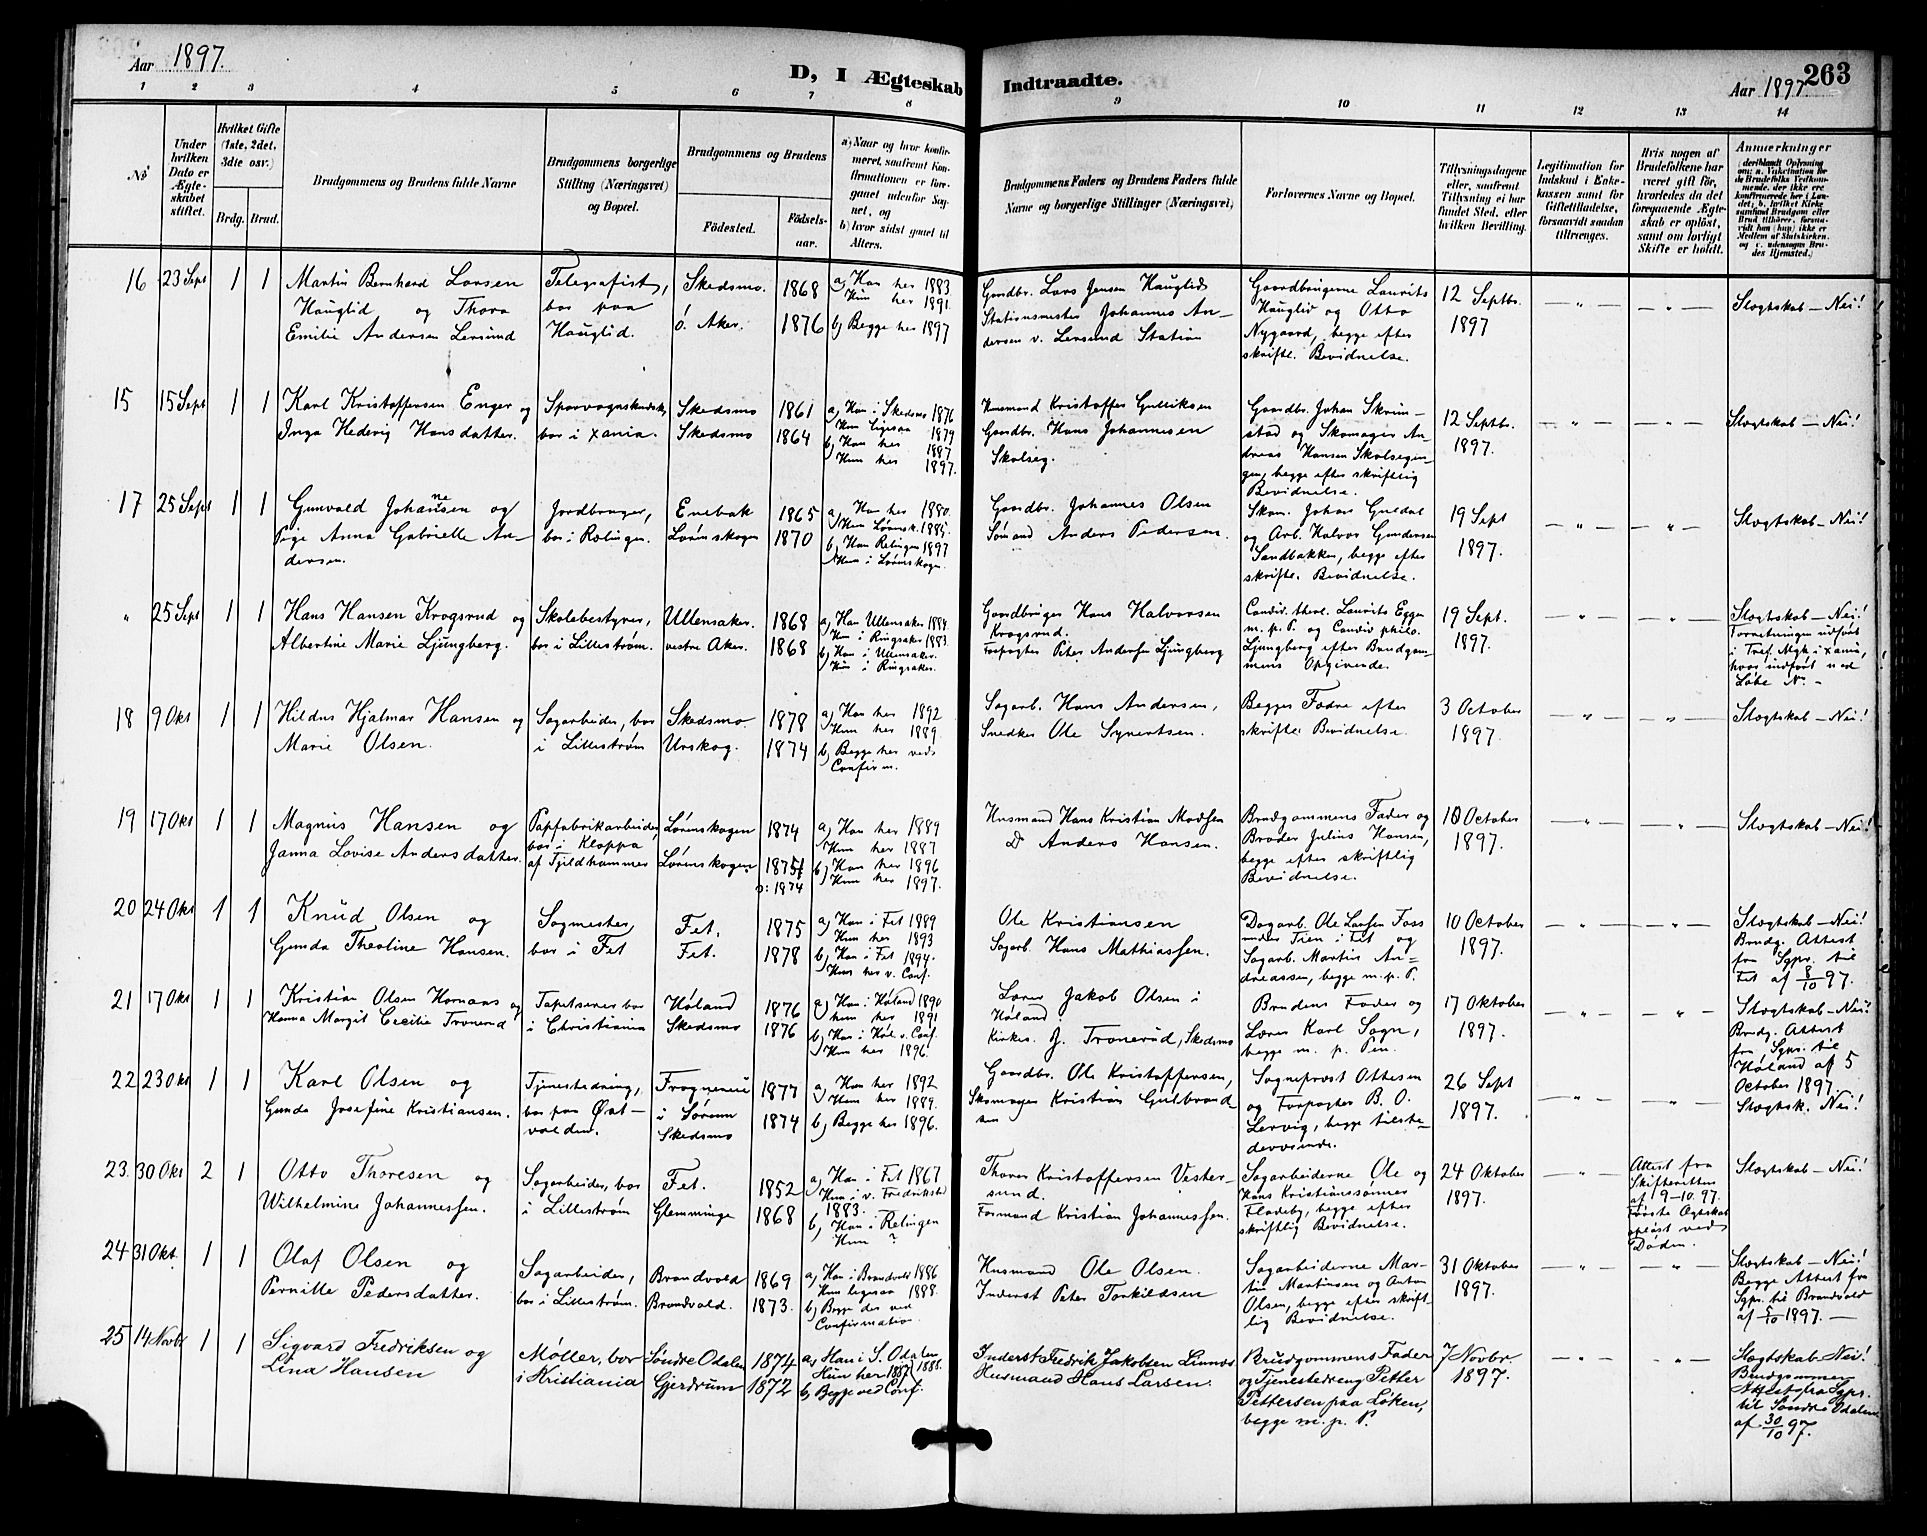 Aar 1897.
D, I Ægteskab Indtraadte.
Aar 1897.
263
1 2 3 4 5 6 7 8 9 10 11 12 13 14
No
Under hvilken Dato er Ægteskabet stiftet.
Hvilket Gifte (1ste, 2det, 3dte osv.)
Brdg. Brud.
Brudgommens og Brudens fulde Navne
Brudgommens borgerlige Stilling (Næringsvei) og Bopæl.
Brudgommens og Brudens
Fødested. Fødsels-aar.
a) Naar og hvor konfirmeret, saafremt Konfirmationen er foregaaet udenfor Sognet, og
b) hvor sidst gaaet til Alters.
Brudgommens Faders og Brudens Faders fulde Navne og borgerlige Stillinger (Næringsvei)
Forlovernes Navne og Bopæl.
Tillysningsdagene eller, saafremt Tillysning ei har fundet Sted, efter hvilken Bevilling.
Legitimation for Indskud i Enkekassen samt for Giftetilladelse, forsaavidt saadan tiltrænges.
Hvis nogen af Brudefolkene har været gift før, hvorledes da det foregaaende Ægteskab er opløst, samt om lovligt Skifte er holdt.
Anmærkninger
16 23 Sept 1 1
Martin Bernhard Larsen
Hauglid og Thora
Emilie Andersen Lersund
Telegrafist,
bor paa
Hauglid.
Skedsmo. 1868
Ø. Aker. 1876
a) Han her 1883
Hun her 1891.
b) Begge her 1897
Gaardbr. Lars Jensen Hauglid
Stationsmester Johannes An-
dersen v. Lersund Station
Gaardbrugerne Laurits
Hauglid og Otto
Nygaard, begge efter
skriftl. Bevidnelse.
12 Septbr.
1897
Slægtskab - Nei!
15 15 Sept 1 1
Karl Kristoffersen Enger og
Inga Hedevig Hansdatter.
Sporvognskudsk,
bor i Xania.
Skedsmo 1861
Skedsmo 1864
a) Han i Skedsmo 1876
Hun ligesaa 1879
b) Han her 1887
Hun her 1897.
Husmand Kristoffer Gulliksen
Gaardbr. Hans Johannesen
Skolseg.
Gaardbr. Johan Skrim-
stad og Skomager An-
dreas Hansen Skolsegen-
gen, begge efter skriftlig
Bevidnelse.
12 Septbr.
1897.
Slægtskab - Nei!
17 25 Sept 1 1
Gunvald Johannesen og
Pige Anna Gabrielle An-
dersen.
Jordbruger,
bor i Rælingen.
Enebak 1865
Lørenskogen 1870
a) Han her 1880.
Hun Lørensk. 1885.
b) Han Relingen 1897
Hun i Lørenskogen.
Gaardbr. Johannes Olsen
Sømand Anders Pedersen.
Skom. Johan Guldal
og Arb. Halvor Gundersen
Sandbakken, begge efter
skriftl. Bevidnelse.
19 Sept
1897.
Slægtskab - Nei!
" 25 Sept 1 1
Hans Hansen Krogsrud og
Albertine Marie Ljungberg.
Skolebestyrer,
bor i Lillestrøm.
Ullensaker. 1868
vestre Aker. 1868
a) Han Ullensaker 1884.
Hun i Ringsaker 1883.
b) Han i Ullensaker.
Hun i Ringsaker.
Gaardbruger Hans Halvorsen
Krogsrud.
Forpagter Peter Andersen Ljungberg
Candid. theol. Laurits Egge
m. p. P. og Candid. philo.
Ljungberg efter Brudgom-
mens Opgivende.
19 Sept.
1897.
Slægtskab - Nei!
Forretningen udført
i Tref. Mgk i Xania,
hvor indført ved
Løbe No -
18 9 Okt 1 1
Hildus Hjalmar Hansen og
Marie Olsen.
Sagarbeider, bor
i Lillestrøm
Skedsmo 1878
Urskog. 1874
a) Han her 1892
Hun her 1889.
b) Begge her ved
Confirm.
Sagarb. Hans Andersen,
Snedker Ole Syvertsen.
Begges Fædre efter
skriftl. Bevidnelse.
3 October
1897.
Slægtskab - Nei!
19 17 Okt 1 1
Magnus Hansen og
Janna Lovise Andersdatter.
Papfabrikarbeider,
bor i Kloppa
af Fjeldhammer
Lørenskogen 1874
Lørenskogen 1875
ɔ: 1874
a) Han her 1889
Hun her 1887
b) Han her 1896
Hun her 1897.
Husmand Hans Kristian Madsen
Do Anders Hansen.
Brudgommens Fader og
Broder Julius Hansen,
begge efter skriftlig
Bevidnelse.
10 October
1897.
Slægtskab - Nei!
20 24 Okt 1 1
Knud Olsen og
Gunda Theoline Hansen.
Sagmester,
bor i Fet
Fet. 1875
Fet. 1878
a) Han i Fet 1889
Hun her 1893
b) Han i Fet 1894.
Hun her v. Conf.
Ole Kristiansen
Sagarb. Hans Mathiassen.
Dagarb. Ole Larsen Foss
under Tien i Fet og
Sagarb. Martin An-
dreassen, begge m. p. P.
10 October
1897.
Slægtskab - Nei!
Brudg. Attest
fra Sgpr. til
Fet af 8/10 97.
21 17 Okt 1 1
Kristian Olsen Hornaas og
Hanna Margit Cecilie Tronerud
Tapetserer bor
i Christiania
Høland 1876
Skedsmo 1876
a) Han i Høland 1890
Hun her 1891
b) Han i Høl. v. Conf.
Hun her 1896.
Lærer Jakob Olsen i
Høland
Kirkes. J. Tronerud, Skedsmo
Brudens Fader og
Lærer Karl Sogn,
begge m. p. Pen.
17 Oktober
1897.
Slægtskab - Nei!
Brudg. Attest
fra Sgpr. til
Høland af 5
October 1897.
22 23 Okt 1 1
Karl Olsen og
Gunda Josefine Kristiansen.
Tjenestedreng,
bor paa Øst-
volden.
Frogner
i Sørum 1877
Skedsmo 1874
a) Han her 1892
Hun her 1889.
b) Begge her 1896.
Gaardbr. Ole Kristoffersen,
Skomager Kristian Gulbrand
sen
Sognepræst Ottesen
og Forpagter B. O.
Lervig, begge tilste-
deværende.
26 Sept
1897.
Slægtsk. Nei!
23. 30 Okt 2 1
Otto Thoresen og
Wilhelmine Johannessen.
Sagarbeider, bor
i Lillestrøm
Fet. 1852
Glemminge 1868
a) Han i Fet 1867
Hun i v. Fredrikstad
1883.
b) Han i Relingen
Hun ?
Thorer Kristoffersen Vester-
sund.
Formand Kristian Johannessen.
Sagarbeiderne Ole og
Hans Kristianssønner
Fladeby, begge efter
skriftlig Bevidnelse.
24 Oktober
1897.
Attest fra
Skifteretten
af 9-10.97.
Første Ægteskab
opløst ved
Døden.
Slægtskab - Nei!
24 31 Okt. 1 1
Olaf Olsen og
Pernille Pedersdatter.
Sagarbeider,
bor i Lillestrøm.
Brandvold 1869
Brandvold. 1873.
a) Han i Brandvold 1886
Hun ligesaa 1888.
b) Begge der ved
Confirmation
Husmand Ole Olsen.
Inderst Peter Torkildsen
Sagarbeiderne Mar-
tin Martinsen og Anton
Olsen, begge efter skrift-
lig Bevidnelse.
31 Oktober
1897.
Slægtskab - Nei!
Begge Attest fra
Sgpr. til Brandvold
af 5/10 1897. -
25 14 Novbr 1 1
Sigvard Fredriksen og
Lina Hansen
Møller, bor
i Kristiania
Søndre Odalen 1874
Gjerdrum 1872
a) Han i S. Odalen
Hun her 1887 1888.
b) Begge ved Conf.
Inderst Fredrik Jakobsen Linnes
Husmand Hans Larsen.
Brudgommens Fader
og Tjenestedreng Petter
Pettersen paa Løken,
begge m. p. P.
7 Novbr.
1897.
Slægtskab Nei!
Brudgommen
Attest fra Sgpr.
til Søndre Odalen
af 30/10 97.